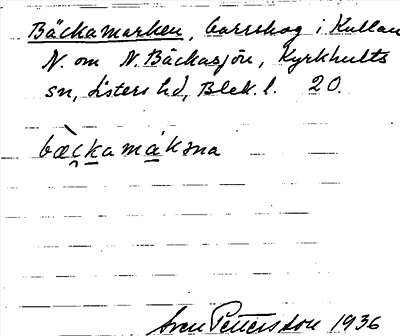 Bäckamarken, barrskog i Kullan
N. om N. Bäckasjön, Kyrkhults
sn, Listers hd, Blek. l. 20.
bæ̀c̯kamáksna
Sven Pettersson 1936